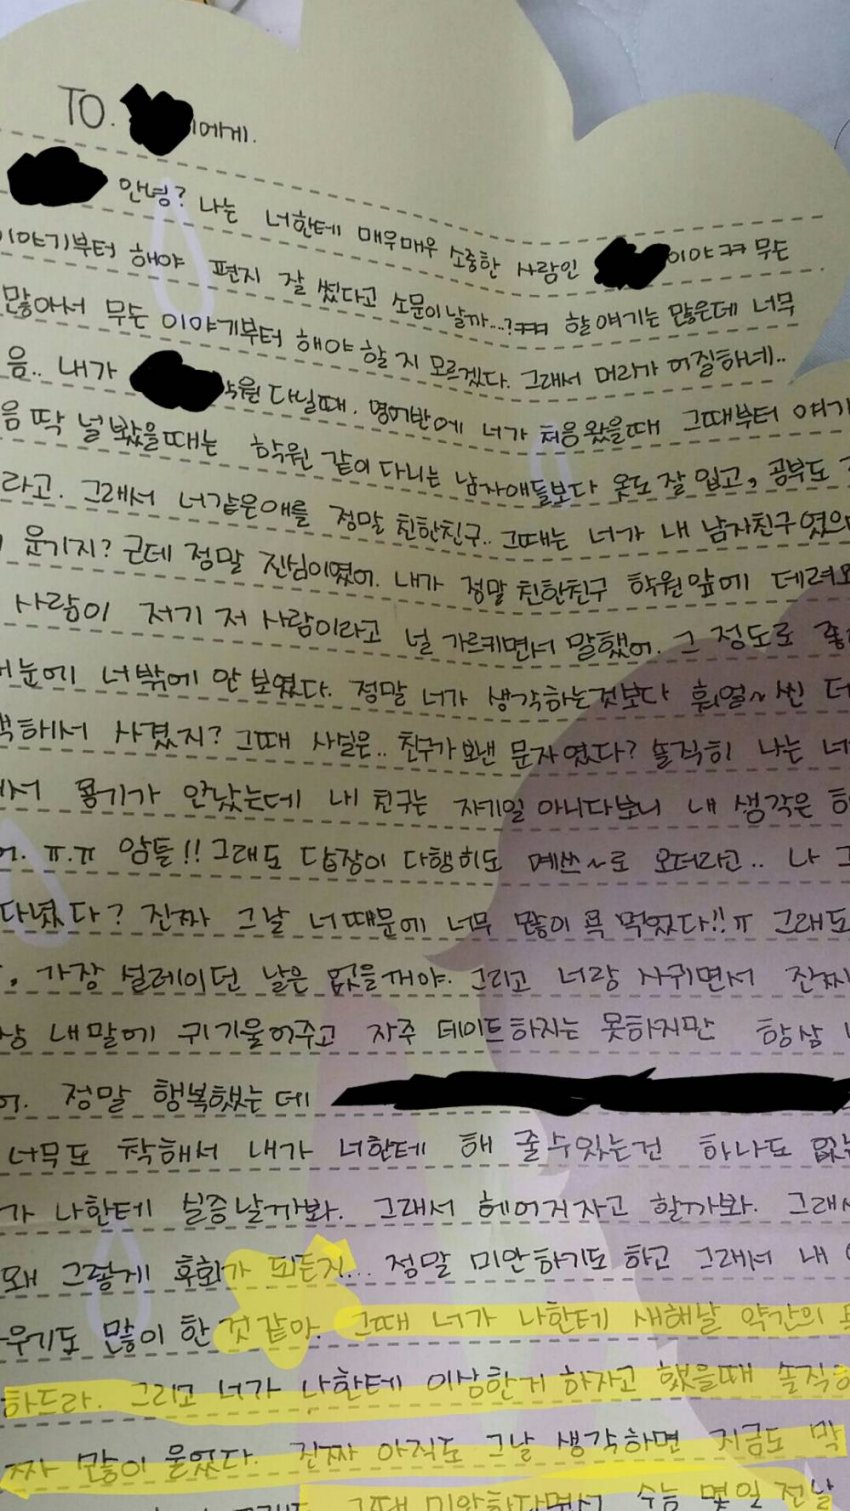 TO. 이에게.
안녕? 나는 너한테 매우매우 소중한 사람인 이야ㅋㅋ 무든
이야기부터 해야 편지 잘 썼다고 소문이날까...?ㅋㅋㅋ 할얘기는 많은데 너무
많아서 무든 이야기부터 해야 할지 모르겠다. 그래서 머리가 어질하네..
음.. 내가 학원 다닐때. 영어반에 너가 처음왔을때 그때부터 얘기
음 딱 널 봤을때는 학원 같이 다니는 남자애들보다 옷도 잘 입고, 공부도
라고. 그래서 너같은애를 정말 친한친구.. 그때는 너가 내 남자친구였으
웃기지? 근데 정말 진심이였어. 내가 정말 친한친구 학원앞에 데려와
사람이 저기 저 사람이라고 널 가르키면서 말했어. 그 정도로 좋
눈에 너밖에 안 보였다. 정말 너가 생각하는것보다 훠얼~씬 더
해서 사겼지? 그때 사실은.. 친구가 보낸 문자였다? 솔직히 나는 너
서 용기가 안났는데 내 친구는 자기일 아니다보니 내 생각은
어. ㅠ.ㅠ 암튼!! 그래도 답장이 다행히도 예쓰~로 오더라고.. 나 그
다녔다? 진짜 그날 너때문에 너무 많이 욕 먹었다!!ㅠ 그래도
가장 설레이던 날은 없을꺼야. 그리고 너랑 사귀면서 진짜
상 내말에 귀기울여주고 자주 데이트하지는 못하지만 항상
어. 정말 행복했는데
너무도 착해서 내가 너한테 해 줄수있는건 하나도 없는
가 나한테 실증날까봐. 그래서 헤어지자고 할까봐. 그래서
왜 그렇게 후회가 되든지... 정말 미안하기도 하고 그래서 내
우기도 많이 한것 같아. 그때 너가 나한테 새해날 약간의
하드라. 그리고 너가 나한테 이상한거 하자고 했을때 솔직히
짜 많이 울었다. 진짜 아직도 그날 생각하면 지금도 막
그때 미안하다면서 수능 몇일 전날